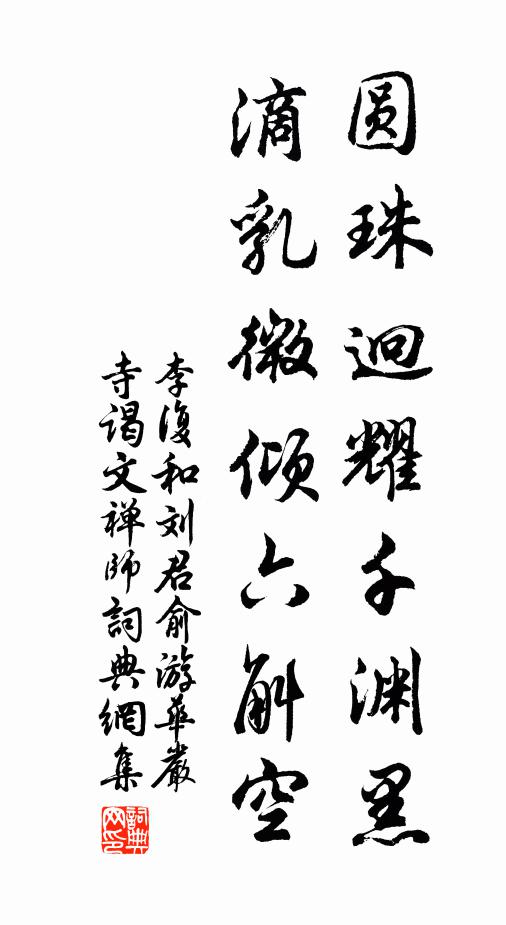 圆珠迥耀千渊黑
滴乳微倾六斛空
李復和刘君俞游華嚴
寺谒文禅师詞典網集
詞典
网印